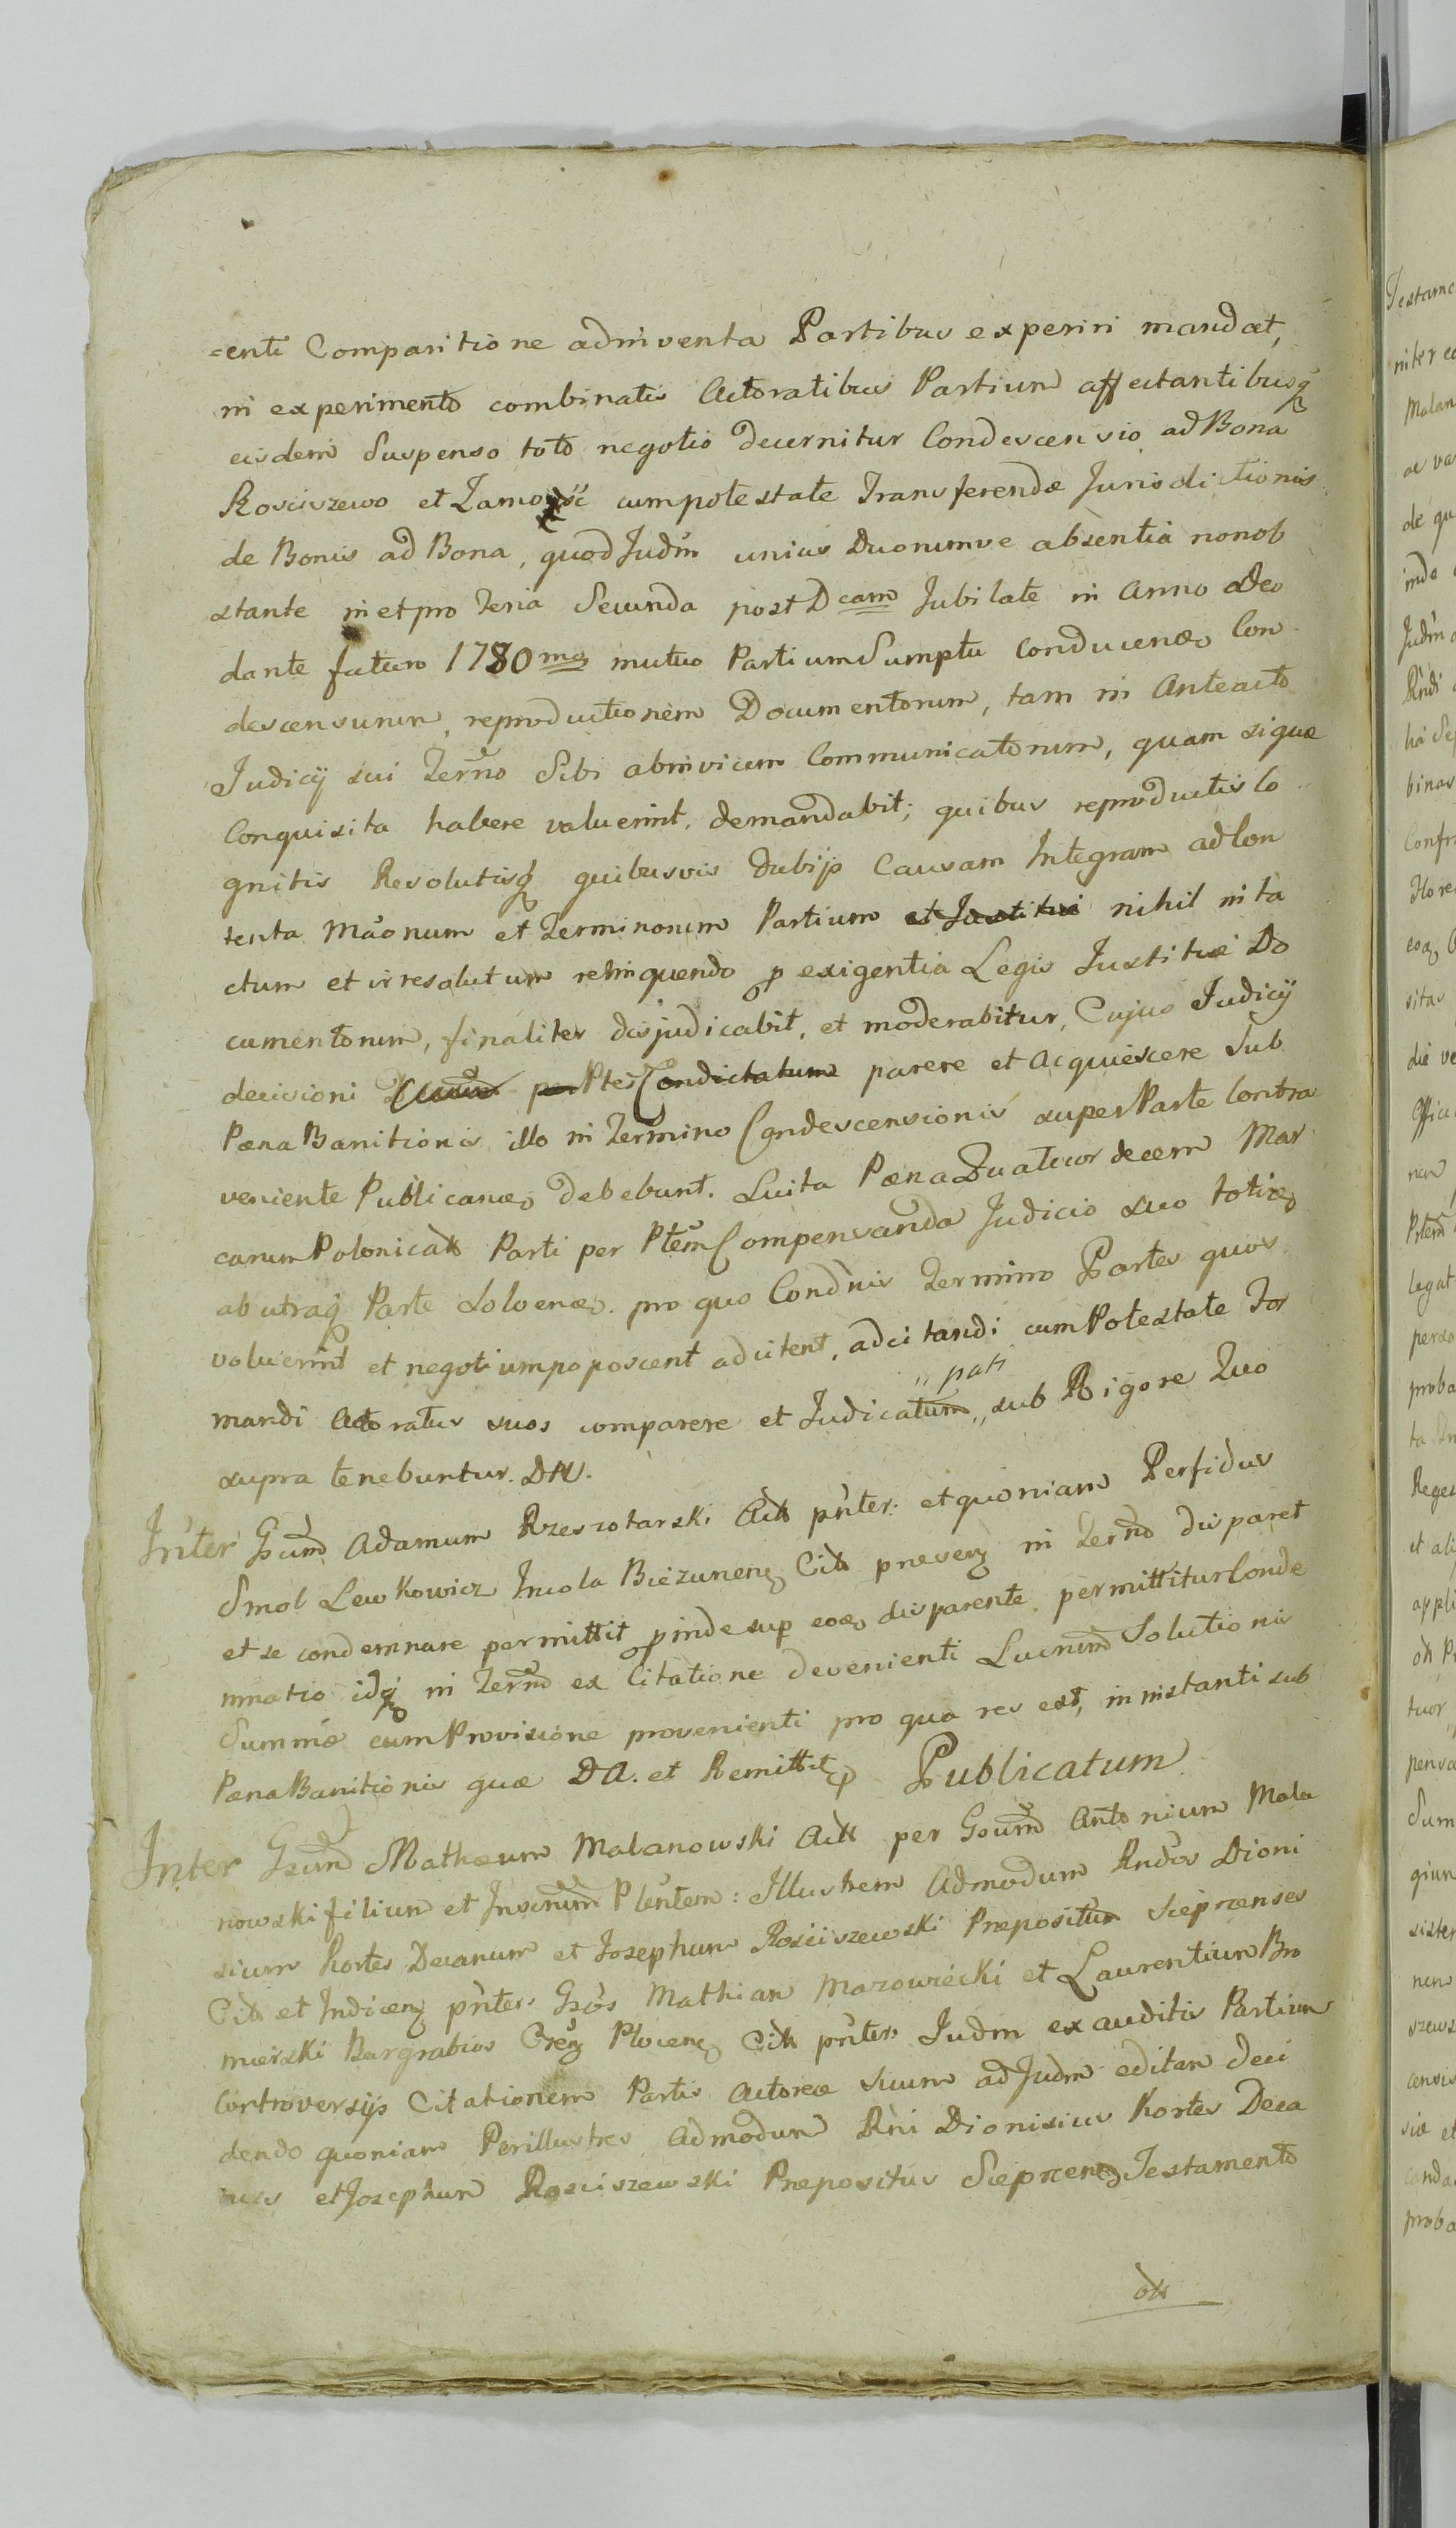 =enti Comparitione adinventa Partibus experiri mandat,
in experimento combinatis Actoratibus Partium affectantibusq
eisdem Suspenso toto negotio decernitur Condescensio ad Bona
Rosciszewo et Zamość cum potestate Transferendæ Jurisdictionis
de Bonis ad Bona, quod Judm unius Duorumve absentia nonob
stante in et pro Feria Secunda post Dcam Jubilate in Anno Deo
dante futuro 1780mo mutuo Partium Sumptu conducend Con
descensurum, reproductionem Documentorum, tam in Anteacto
Judicij sui Termo Sibi abinvicem Communicatorum, quam siquæ
Conquisita habere valuerint. demandabit; quibus reproductis Co
gnitis Resolutisq quibusvis dubijs Causam Integram ad Con
tenta Mãonum et Terminorum Partium et Justitiæ nihil inta
ctum et irresolutum relinquendo p exigentia Legis Justitiæ Do
cumentorum, finaliter disjudicabit, et moderabitur, Cujus Judicij
decisioni Ptes Condictatum parere et acquiescere sub
Pæna Banitionis illo in Termino Condescensionis super Parte Contra
veniente Publicand debebunt. Luita Pæna Quatuor decem Mar
carum Polonical Parti per Ptem Compensanda Judicio suo toties
ab utraq Parte Solvend. pro quo Condnis Termino Partes quos
voluerint et negotium poposcent adcitent, adcitandi cum Potestate For
mandi Actoratus suos comparere et Judicatum „ pati „ sub Rigore Quo
supra tenebuntur. DN.
Inter Gsum Adamum Rzeszotarski Act pnter. et quoniam Perfidus
Smol Lewkowicz Incola Biezunens Cit pnevens in Termo disparet
et se condemnare permittit pinde sup eod disparente permittitur Conde
mnatio idq in Termo ex Citatione devenienti Lucrum Solutionis
Summæ cum Provisione provenienti pro qua res est, in instanti sub
Pæna Banitionis quæ DA. et Remittit Publicatum
Inter Gsum Mathæum Malanowski Act per Gsum Antonium Mala
nowski filium et Plentem: Illustrem Admodum Rndos Dioni
sium Kortes Decanum et Josephum Rosciszewski Præpositum Sieprcenses
Cit et Indicens pnter. Gsos Mathiam Mazowiecki et Laurentium Bro
mierski Burgrabios Cres Plocens Cit pnter. Judm exauditis Partium
Controversijs Citationem Partis Actoreæ Suum ad Judm editam deci
dendo quoniam Perillustres Admodum Rni Dionisius Kortes Deca
nus et Josephum Rosciszewski Præpositus Sieprcens Testamento